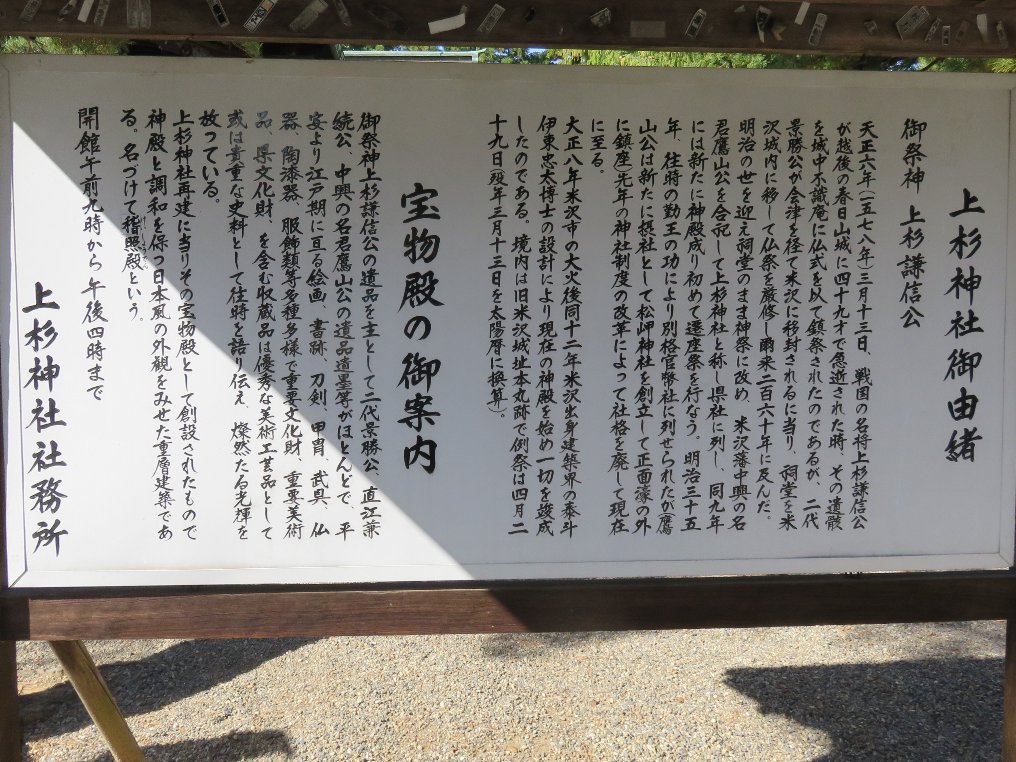 上杉神社御由緒
御祭神　上杉謙信公
天正六年（一五七八年）三月十三日、戦国の名将上杉謙信公
が越後の春日山城に四十九才で急逝された時、その遺骸
を城中不識庵に仏式を以て鎮祭されたのであるが、二代
景勝公が会津を経て米沢に移封されるに当り、祠堂を米
沢城内に移して仏祭を厳修し爾来二百六十年に及んだ。
明治の世を迎え祠堂のまま神祭に改め、米沢藩中興の名
君鷹山公を合祀して上杉神社と称し県社に列し、同九年
には新たに神殿成り初めて遷座祭を行なう。明治三十五
年、往時の勤王の功により別格官幣社に列せられたが（鷹
山公は新たに摂社として松岬神社を創立して正面濠の外
に鎮座）先年の神社制度の改革によって社格を廃して現在
に至る。
大正八年米沢市の大火後同十二年米沢出身建築界の泰斗
伊東忠太博士の設計により現在の神殿を始め一切を竣成
したのである。境内は旧米沢城址本丸跡で例祭は四月二
十九日（歿年三月十三日を太陽暦に換算）。
宝物殿の御案内
御祭神上杉謙信公の遺品を主として二代景勝公、直江兼
続公、中興の名君鷹山公の遺品遺墨等がほとんどで、平
安より江戸期に亘る絵画、書跡、刀剣、甲冑、武具、仏
器、陶漆器、服飾類等多種多様で重要文化財、重要美術
品、県文化財、を含む収蔵品は優秀な美術工芸品として
或は貴重な史料として往時を語り伝え、燦然たる光輝を
放っている。
上杉神社再建に当りその宝物殿として創設されたもので
神殿と調和を保つ日本風の外観をみせた重層建築であ
る。名づけて稽照殿という。
開館午前九時から午後四時まで
上杉神社社務所